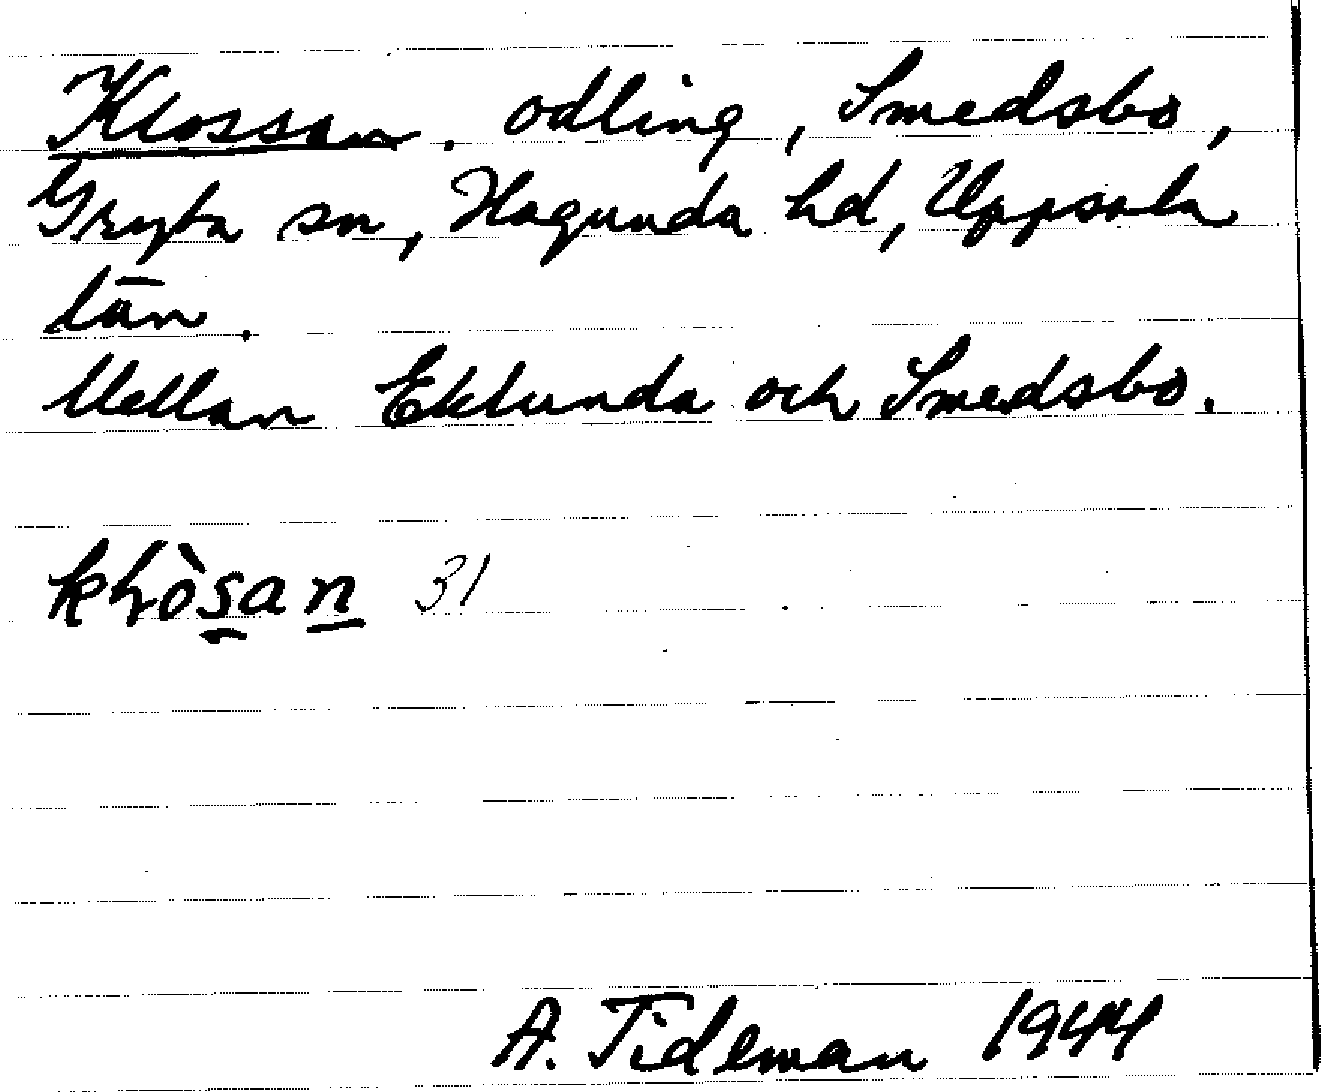 Klossan. odling, Smedsbo,
Gryta sn, Hagunda hd, Uppsala
län.
Mellan Eklunda och Smedsbo.
klòsan 31
A. Tideman 1944